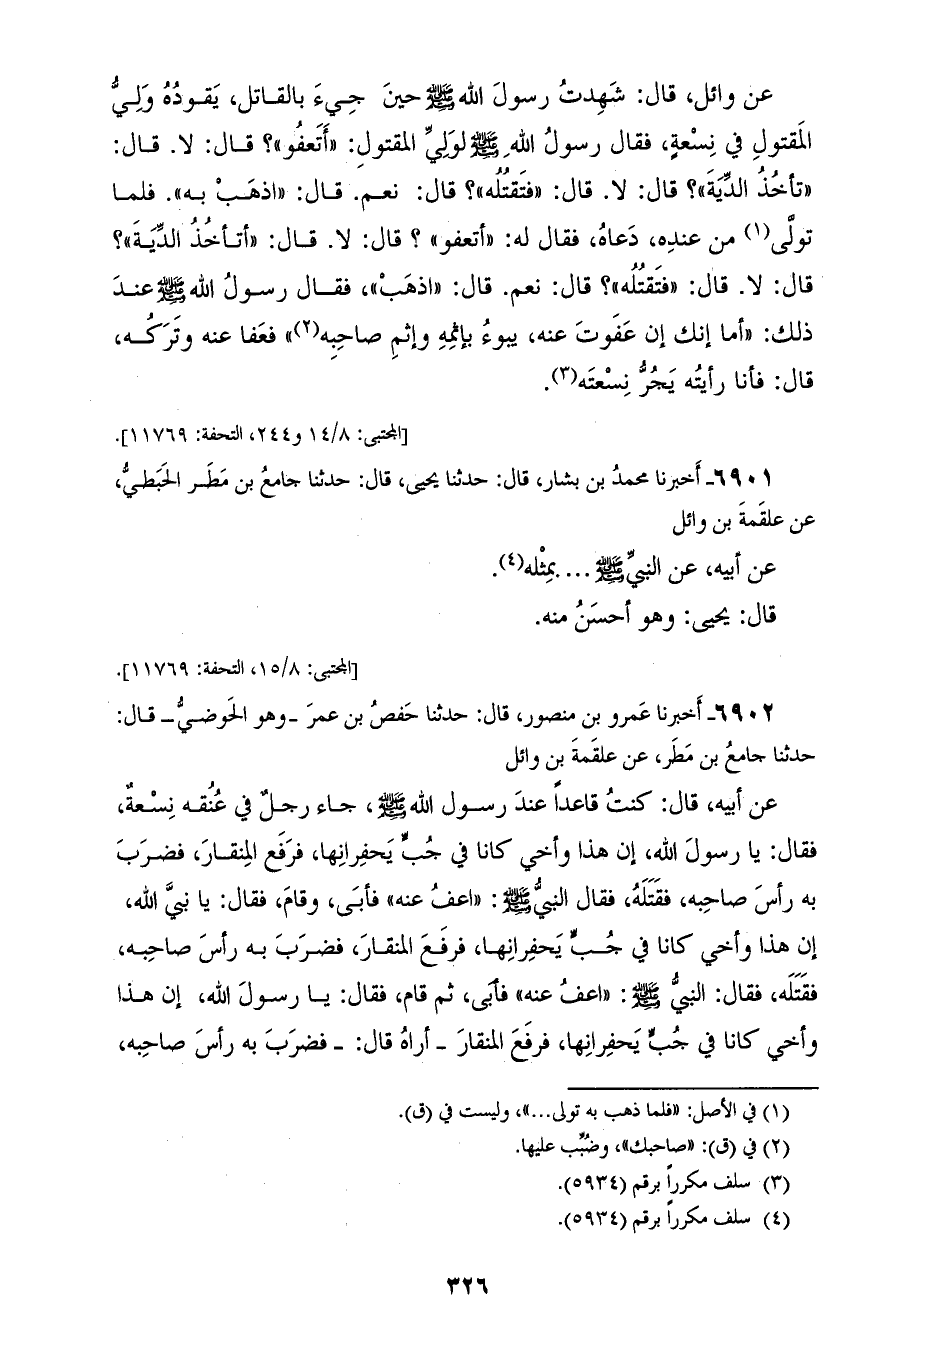 عن وائل، قال: شَهِدتُ رسولَ الله ﷺ حينَ جِيءَ بالقاتل، يَقودُهُ وَلِيُّ
المَقتولِ في نِسْعةٍ، فقال رسولُ اللهِ ﷺ لوَلِيِّ المقتولِ: «أَتَعفُو»؟ قال: لا. قال:
«تأخُذُ الدِّيَةَ»؟ قال: لا. قال: «فتَقتُلُه»؟ قال: نعم. قال: «اذهَبْ به». فلما
تولَّى(١) من عندِه، دَعاهُ، فقال له: «أتعفو» ؟ قال: لا. قال: «أتأخُذُ الدِّيَةَ»؟
قال: لا. قال: «فتَقتُلُه»؟ قال: نعم. قال: «اذهَبْ»، فقال رسولُ الله ﷺ عندَ
ذلك: «أما إنك إن عَفَوتَ عنه، يبوءُ بإثمِهِ وإثمِ صاحبِه(٢)» فعَفا عنه وتَرَكُه،
قال: فأنا رأيتُه يَجُرُّ نِسْعتَه(٣).
[المجتبى: ١٤/٨ و٢٤٤، التحفة: ١١٧٦٩].
٦٩٠١ـ أَخبرنا محمدُ بن بشار، قال: حدثنا يحيى، قال: حدثنا جامعُ بن مَطَر الحَبَطيُّ،
عن علقَمةَ بن وائل
عن أبيه، عن النبيِّ ﷺ ... بمِثْله(٤).
قال: يحيى: وهو أحسَنُ منه.
[المجتبى: ١٥/٨، التحفة: ١١٧٦٩].
٦٩٠٢ـ أَخبرنا عَمرو بن منصور، قال: حدثنا حَفصُ بن عمرَ ـ وهو الحَوضيُّ ـ قال:
حدثنا جامعُ بن مَطَر، عن علقَمةَ بن وائل
عن أبيه، قال: كنتُ قاعداً عندَ رسول الله ﷺ، جاء رجلٌ في عُنُقه نِسْعةٌ،
فقال: يا رسولَ الله، إن هذا وأخي كانا في جُبٍّ يَحفِرانِها، فرَفَع المِنقارَ، فضرَبَ
به رأسَ صاحبِه، فقَتَلَهُ، فقال النبيُّ ﷺ: «اعفُ عنه» فأبَى، وقامَ، فقال: يا نبيَّ الله،
إن هذا وأخي كانا في جُبٍّ يَحفِرانِها، فرفَعَ المنقارَ، فضرَبَ به رأسَ صاحِبه،
فقَتَلَه، فقال: النبيُّ ﷺ: «اعفُ عنه» فأَبى، ثم قام، فقال: يا رسولَ الله، إن هذا
وأخي كانا في جُبٍّ يَحفِرانِها، فرفَعَ المنقارَ ـ أراهُ قال: ـ فضرَبَ به رأسَ صاحبِه،
(١) في الأصل: «فلما ذهب به تولى...»، وليست في (ق).
(٢) في (ق): «صاحبك»، وضُبِّب عليها.
(٣) سلف مكرراً برقم (٥٩٣٤).
(٤) سلف مكرراً برقم (٥٩٣٤).
٣٢٦